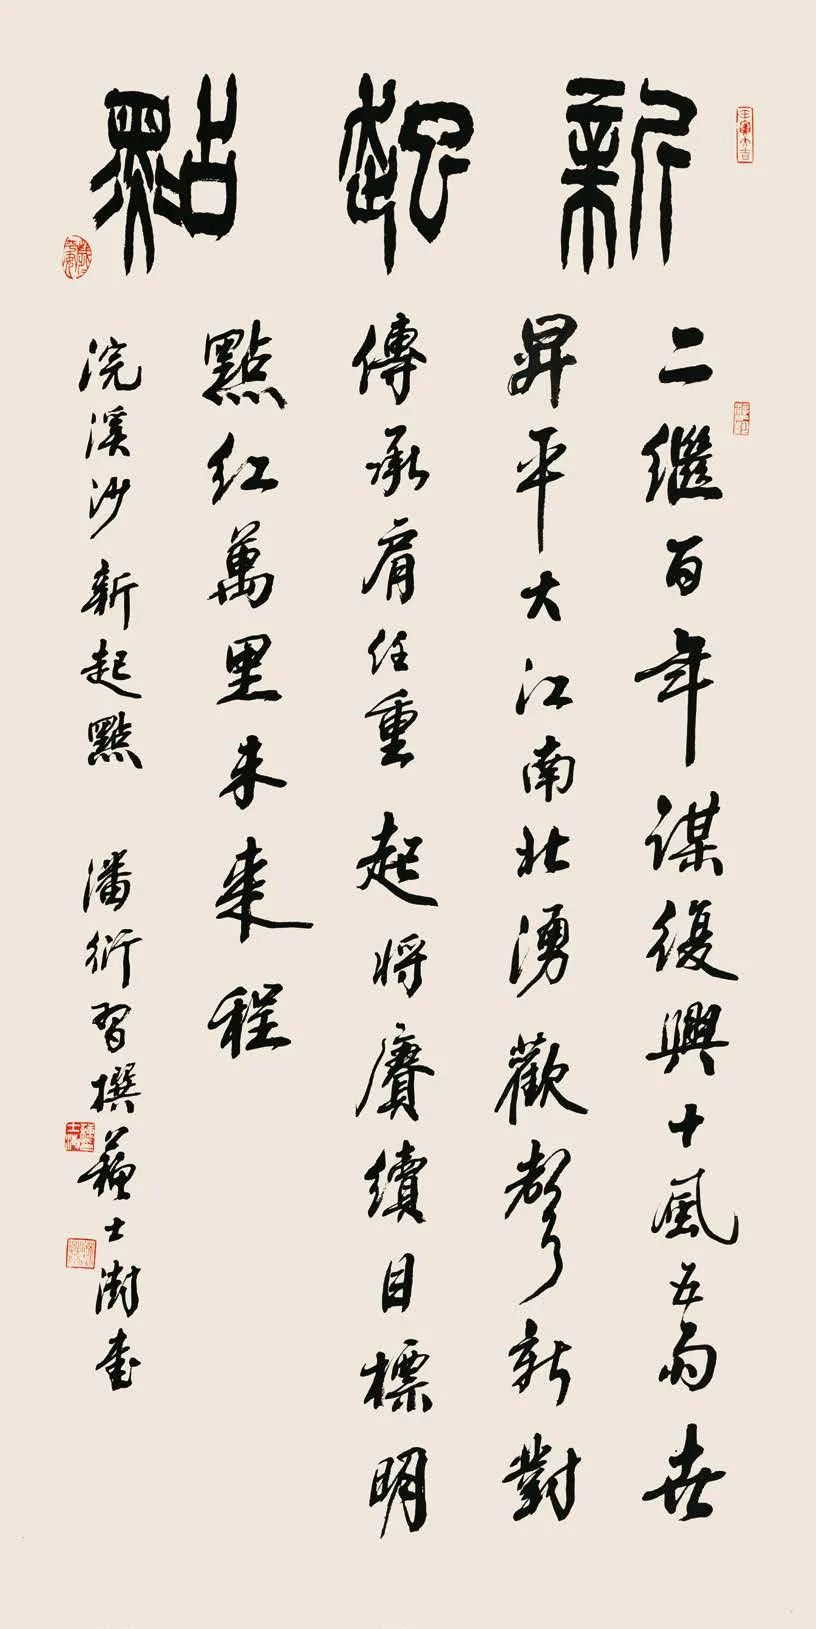 新起點
壬寅大吉
二繼百年謀復興十風五雨喜
昇平大江南北湧歡聲新對
傳承肩任重起將賡續目標明
點紅萬里未來程
浣溪沙 新起點 潘衍習撰蘇士澍書